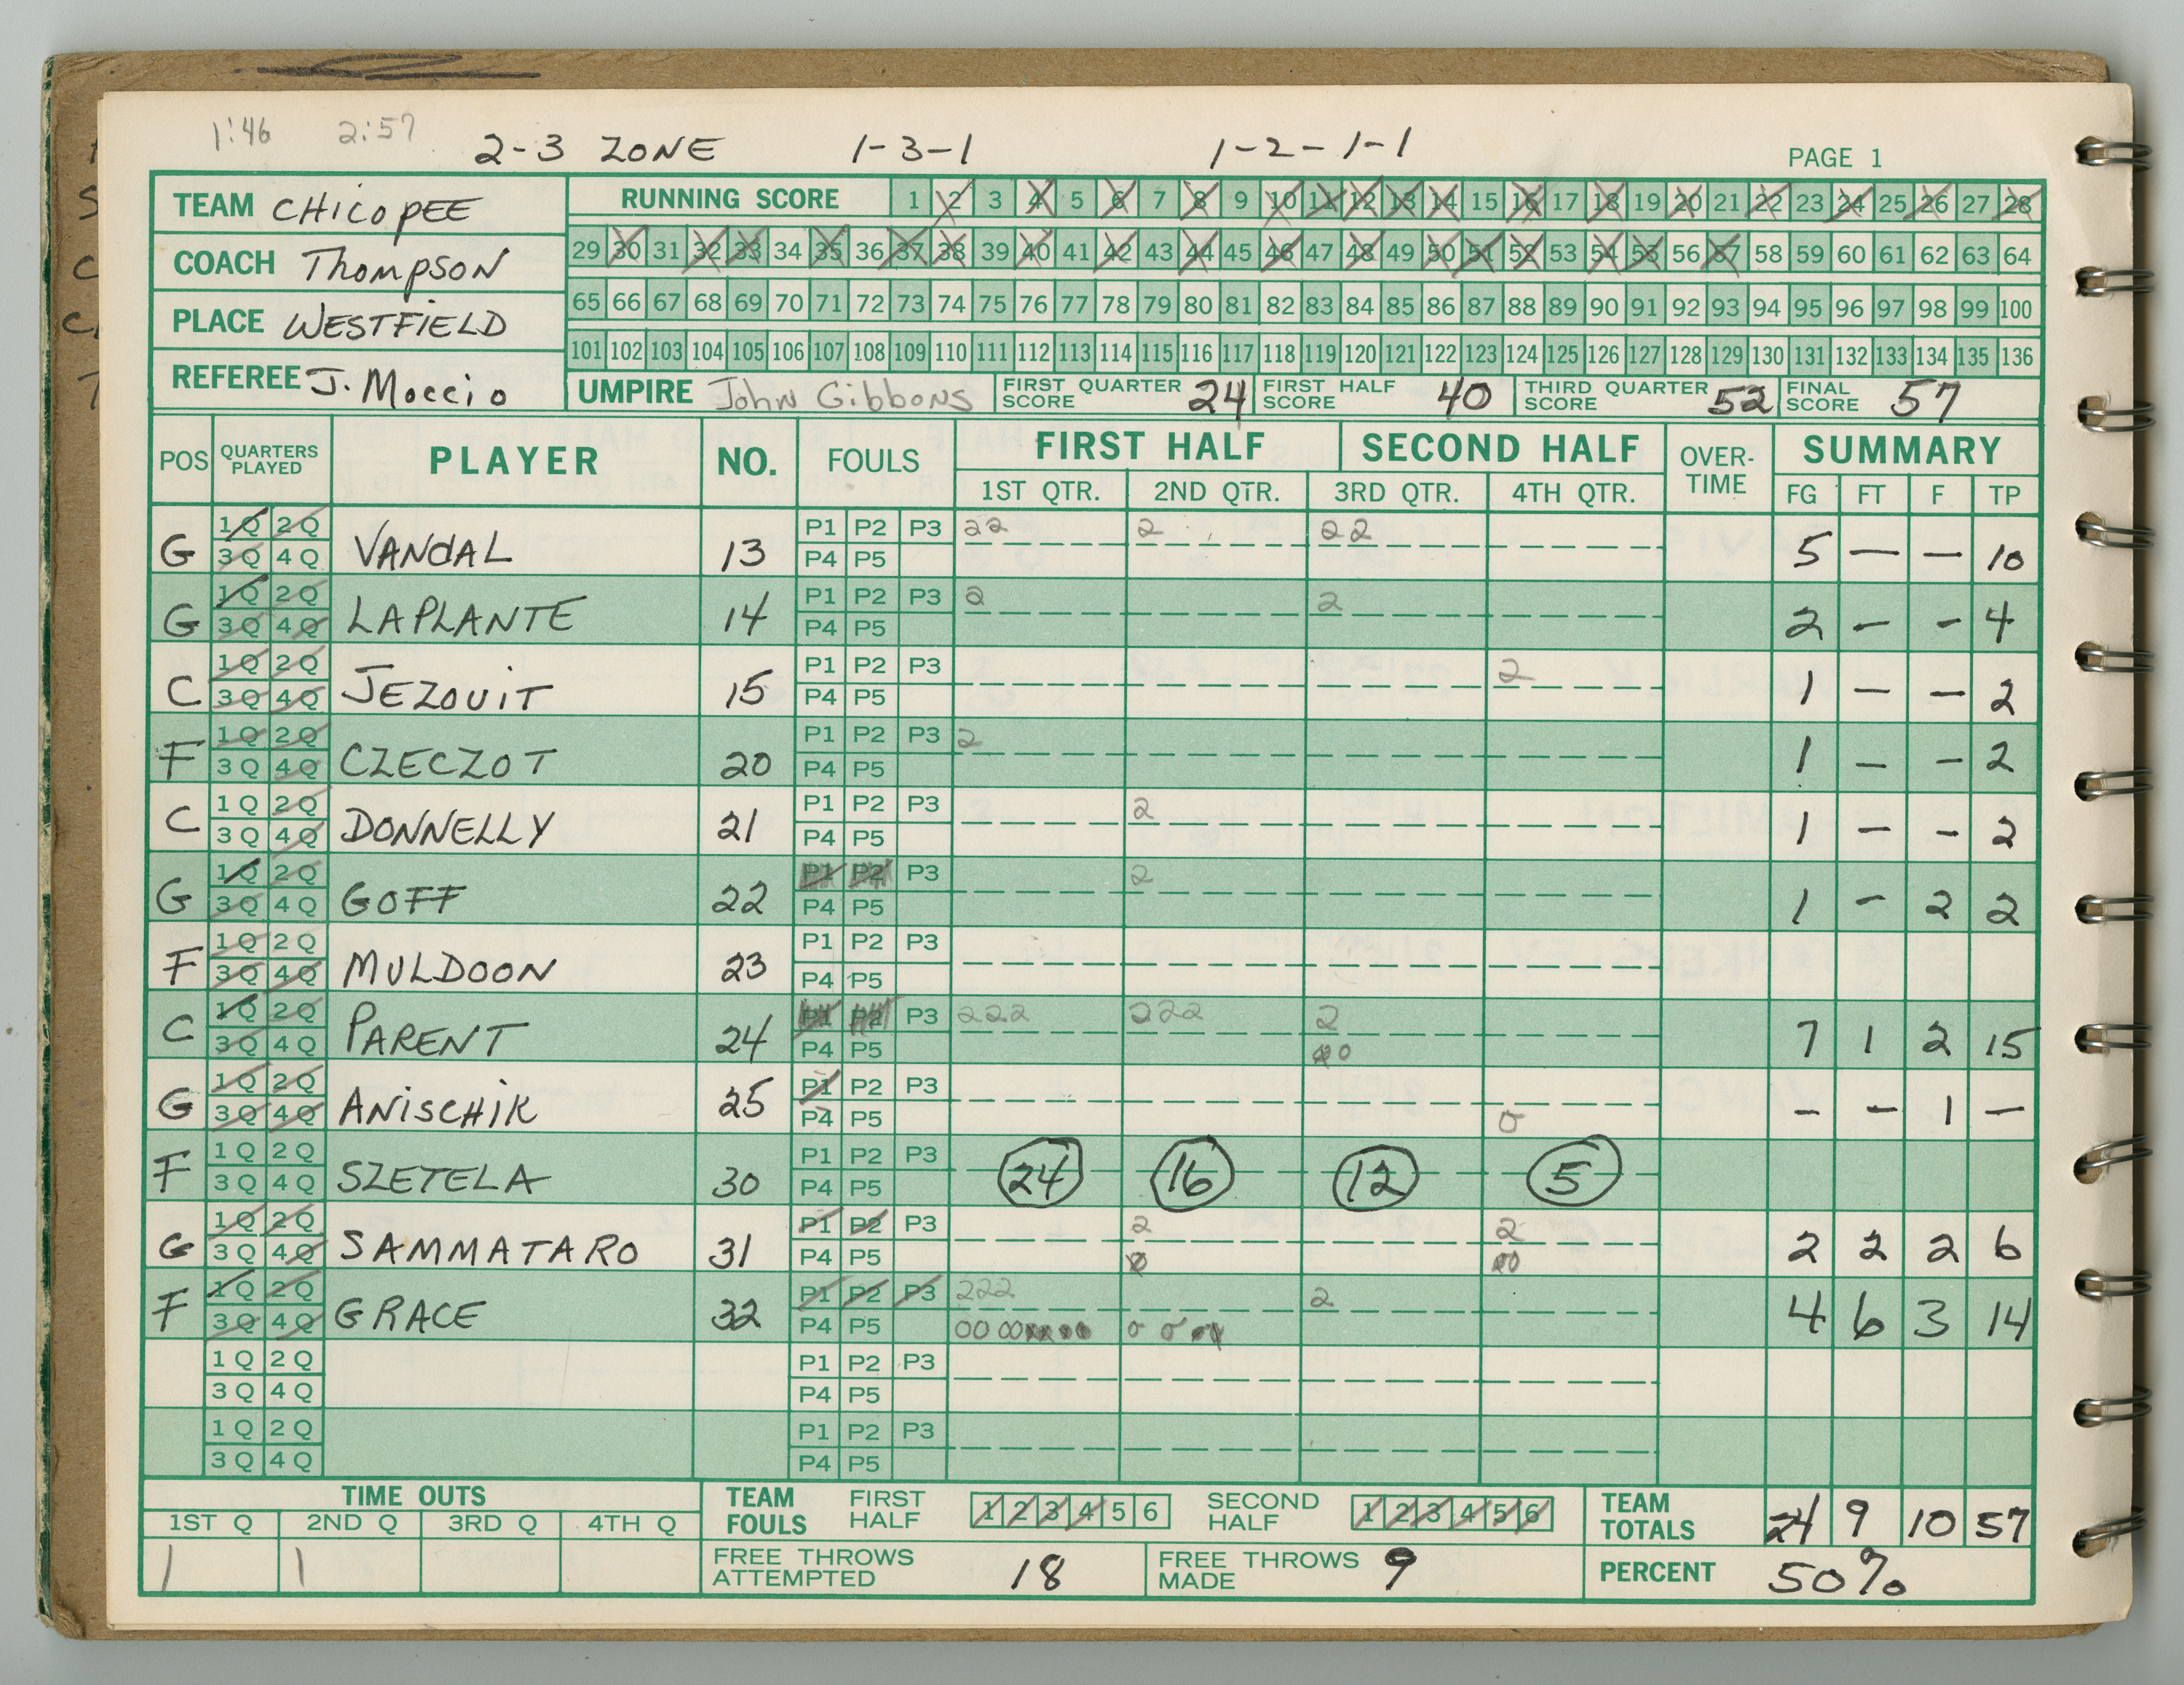 1:46 2:57 2-3 ZONE 1-3-1 1-2-1-1
PAGE 1
TEAM CHICOPEE
COACH THOMPSON
PLACE WESTFIELD
REFEREE J. Moccio
RUNNING SCORE 1 2 3 4 5 6 7 8 9 10 11 12 13 14 15 16 17 18 19 20 21 22 23 24 25 26 27 28
29 30 31 32 33 34 35 36 37 38 39 40 41 42 43 44 45 46 47 48 49 50 51 52 53 54 55 56 57 58 59 60 61 62 63 64
65 66 67 68 69 70 71 72 73 74 75 76 77 78 79 80 81 82 83 84 85 86 87 88 89 90 91 92 93 94 95 96 97 98 99 100
101 102 103 104 105 106 107 108 109 110 111 112 113 114 115 116 117 118 119 120 121 122 123 124 125 126 127 128 129 130 131 132 133 134 135 136
UMPIRE John Gibbons FIRST QUARTER SCORE 24 FIRST HALF SCORE 40 THIRD QUARTER SCORE 52 FINAL SCORE 57
POS QUARTERS PLAYED PLAYER NO. FOULS FIRST HALF SECOND HALF OVER-TIME SUMMARY
1ST QTR. 2ND QTR. 3RD QTR. 4TH QTR. FG FT F TP
1Q 2Q P1 P2 P3 22 2 22
G 3Q 4Q VANDAL 13 P4 P5 5 — — 10
1Q 2Q P1 P2 P3 2 2
G 3Q 4Q LAPLANTE 14 P4 P5 2 — — 4
1Q 2Q P1 P2 P3 2
C 3Q 4Q JEZOUIT 15 P4 P5 1 — — 2
1Q 2Q P1 P2 P3 2
F 3Q 4Q CZECZOT 20 P4 P5 1 — — 2
1Q 2Q P1 P2 P3 2
C 3Q 4Q DONNELLY 21 P4 P5 1 — — 2
1Q 2Q P1 P2 P3 2
G 3Q 4Q GOFF 22 P4 P5 1 — 2 2
1Q 2Q P1 P2 P3
F 3Q 4Q MULDOON 23 P4 P5
1Q 2Q P1 P2 P3 222 222 2
C 3Q 4Q PARENT 24 P4 P5 7 1 2 15
1Q 2Q P1 P2 P3
G 3Q 4Q ANISCHIK 25 P4 P5 0 — — 1 —
1Q 2Q P1 P2 P3
F 3Q 4Q SZETELA 30 P4 P5 24 16 12 5
1Q 2Q P1 P2 P3 2 2
G 3Q 4Q SAMMATARO 31 P4 P5 2 2 2 6
1Q 2Q P1 P2 P3 222 2
F 3Q 4Q GRACE 32 P4 P5 4 6 3 14
1Q 2Q P1 P2 P3
3Q 4Q P4 P5
1Q 2Q P1 P2 P3
3Q 4Q P4 P5
TIME OUTS
1ST Q 2ND Q 3RD Q 4TH Q
1 1
TEAM FOULS FIRST HALF 1 2 3 4 5 6 SECOND HALF 1 2 3 4 5 6 TEAM TOTALS 24 9 10 57
FREE THROWS ATTEMPTED 18 FREE THROWS MADE 9 PERCENT 50%